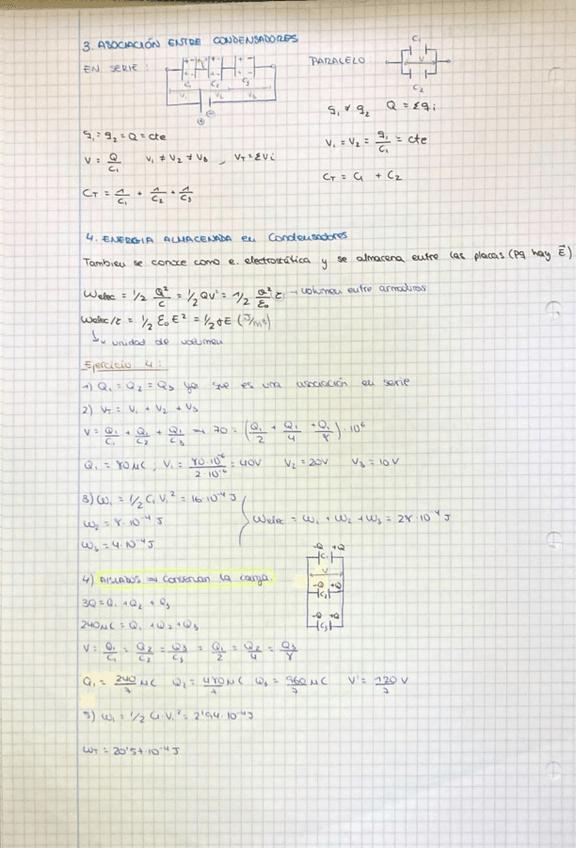 3. ASOCIACIÓN ENTRE CONDENSADORES
EN SERIE:
C₁ C₂ C₃
V₁ V₂ V₃
PARALELO
C₁
V
C₂
q₁ = q₂ = Q = cte
V = Q/C₁ V₁ ≠ V₂ ≠ V₃, V_T = ΣVi
C_T = 1/C₁ + 1/C₂ + 1/C₃
q₁ ≠ q₂ Q = Σqi
V₁ = V₂ = q₁/C₁ = cte
C_T = C₁ + C₂
4. ENERGIA ALMACENADA en Condensadores
Tambien se conoce como e. electrostática y se almacena entre las placas (pq hay E⃗)
Welec = 1/2 Q²/C = 1/2 QV = 1/2 Q²/ε₀ → volumen entre armaduras
Welec/τ = 1/2 ε₀ E² = 1/2 σE (J/m³)
↳ unidad de volumen
Ejercicio 4:
1) Q₁ = Q₂ = Q₃ ya que es una asociación en serie
2) V_T = V₁ + V₂ + V₃
V = Q₁/C₁ + Q₁/C₂ + Q₁/C₃ → 70 = (Q₁/2 + Q₁/4 + Q₁/8) · 10⁶
Q₁ = 80 μC, V₁ = 80·10⁻⁶/2·10⁻⁶ = 40V V₂ = 20V V₃ = 10V
3) W₁ = 1/2 C₁ V₁² = 16·10⁻⁴ J
W₂ = 8·10⁻⁴ J
W₃ = 4·10⁻⁴ J
Welec = W₁ + W₂ + W₃ = 28·10⁻⁴ J
4) AISLADOS ⇒ Conservan la carga.
3Q = Q₁ + Q₂ + Q₃
240 μC = Q₁ + Q₂ + Q₃
V = Q₁/C₁ = Q₂/C₂ = Q₃/C₃ = Q₁/2 = Q₂/4 = Q₃/8
Q₁ = 240/7 μC Q₂ = 480/7 μC Q₃ = 960/7 μC V' = 120/7 V
-Q +Q
C₁
V
-Q +Q
C₂
-Q +Q
C₃
5) W₁ = 1/2 C₁ V₁² = 2'94·10⁻⁴ J
W_T = 20'57·10⁻⁴ J